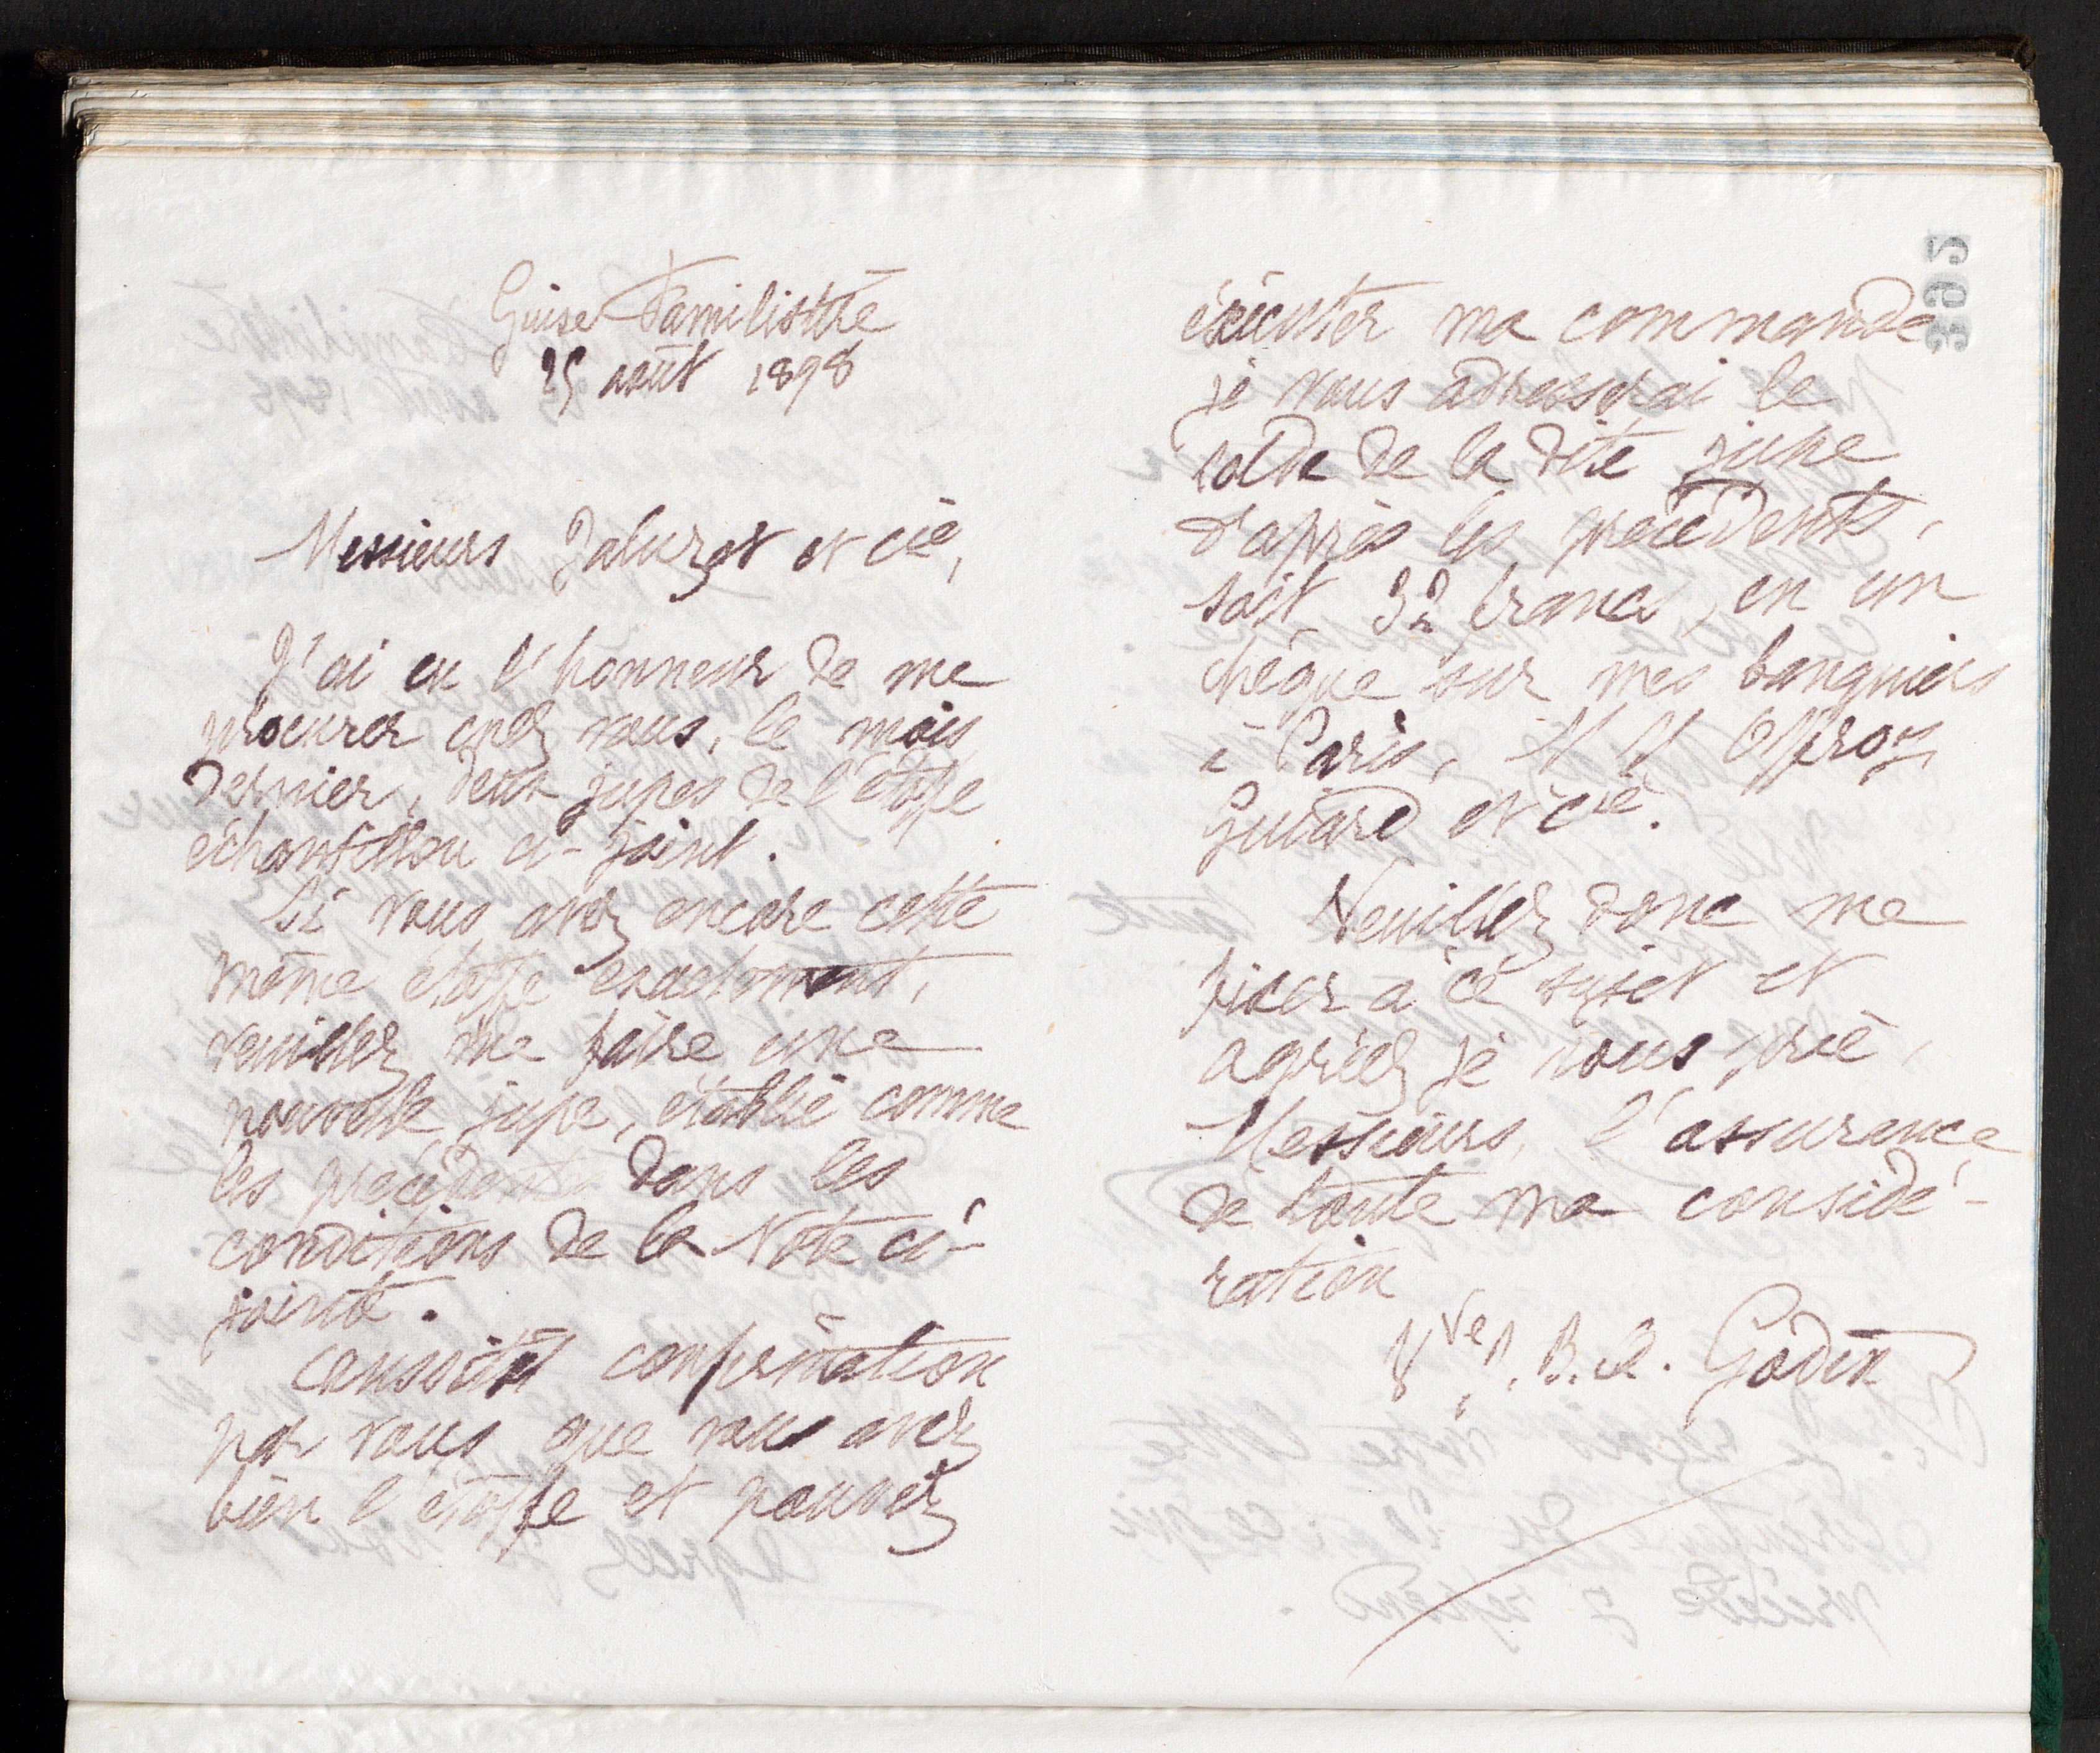 Guise Familistère
25 août 1898
Messieurs Jaluzot et cie,
J'ai eu l'honneur de me
procurer chez vous, le mois
dernier, deux jupes de l'étoffe
échantillon ci-joint.
Si vous avez encore cette
même étoffe exactement,
veuillez me faire une
nouvelle jupe, établie comme
les précédentes dans les
conditions de la Note ci-
jointe.
Aussitôt confirmation
par vous que vous avez
bien l'étoffe et pouvez
395
éxécuter ma commande
je vous adresserai le
solde de la dite jupe
d'après les précédents,
soit 32 francs, en un
chèque sur mes banquiers
à Paris, M M Offroy
Guiard et cie.
Veuillez donc me
fixer à ce sujet et
agréez je vous prie,
Messieurs, l'assurance
de toute ma considé-
ration
Vve A. B. A. Godin